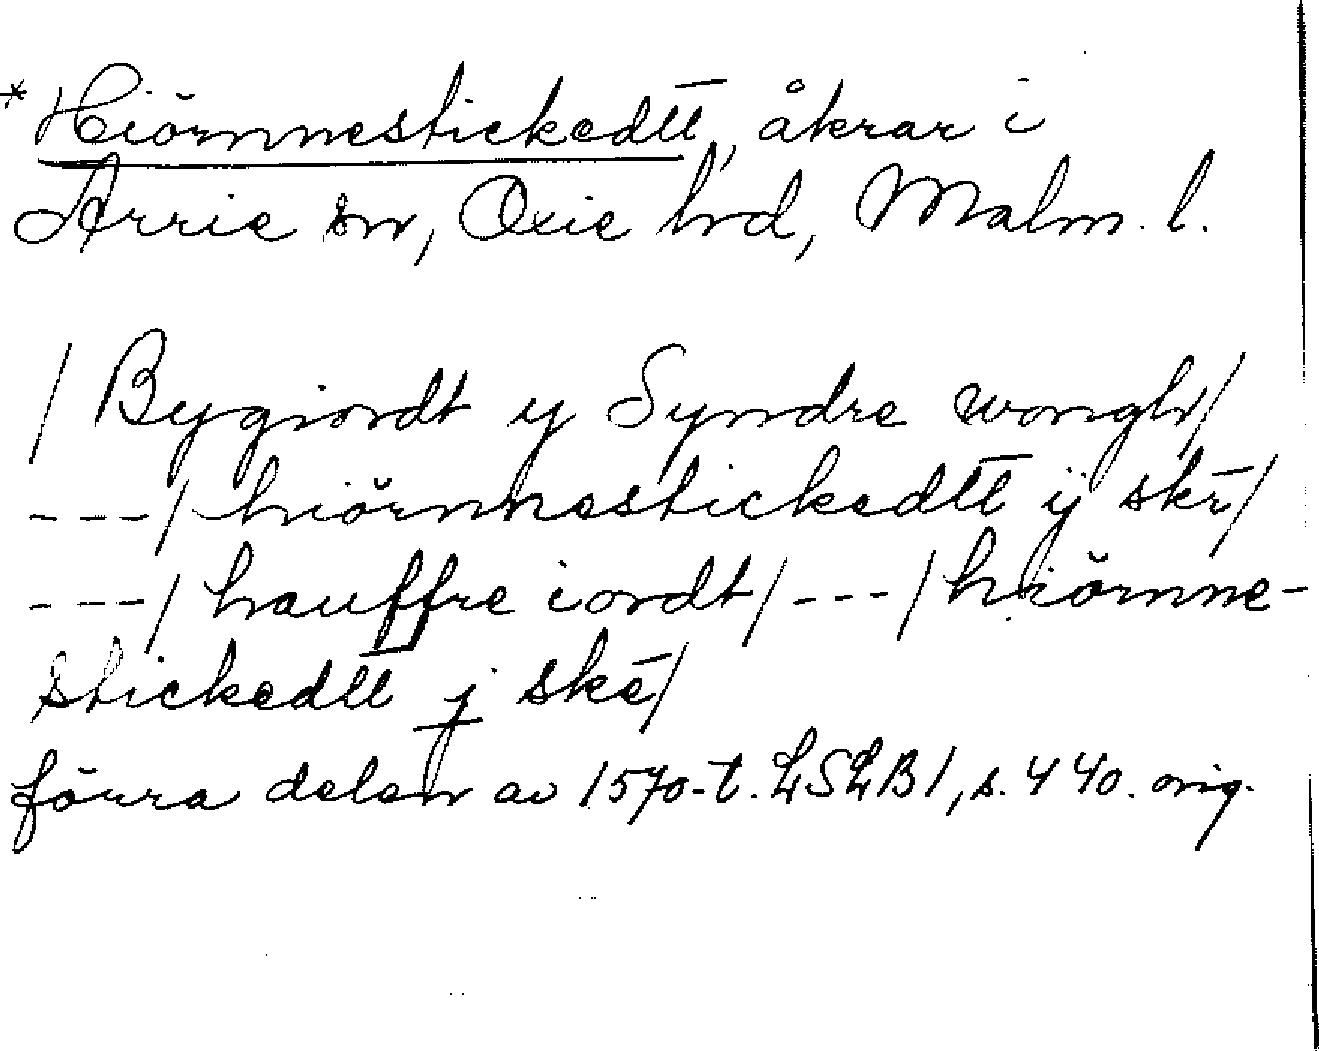 * Hiörnnestickedtt, åkrar i
Arrie sn, Oxie hrd, Malm. l.
/ Bygiordt y Syndre wongh/
---/ hiörnnestickedtt ij skr/
---/ hauffre iordt/ ---/ hiörnne-
stickedtt j ske/
förra delen av 1570-t. LSLB1, s. 440. orig.